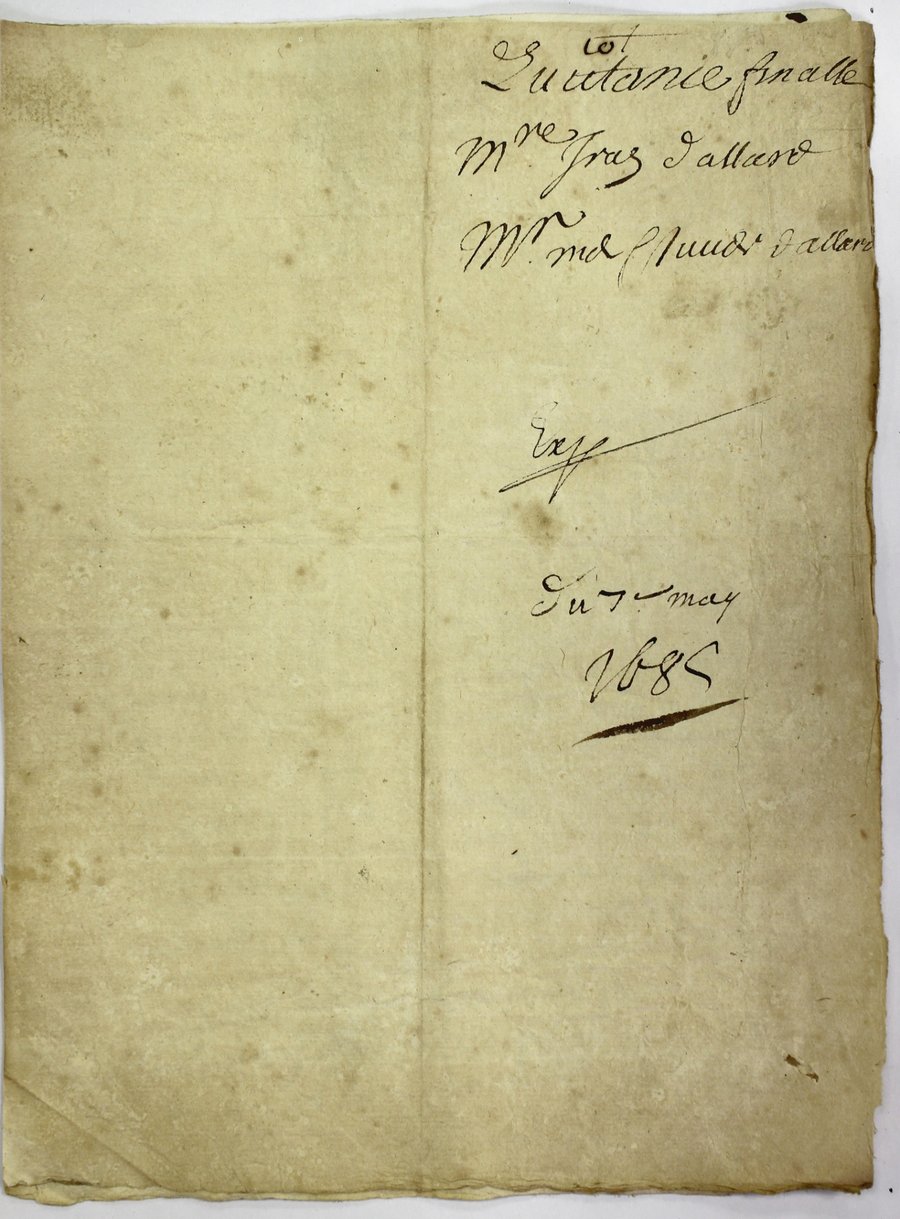 cot
Quittance finalle
Mre Fras dallard
Mr md dallard
Exp
Du 7e may
1685